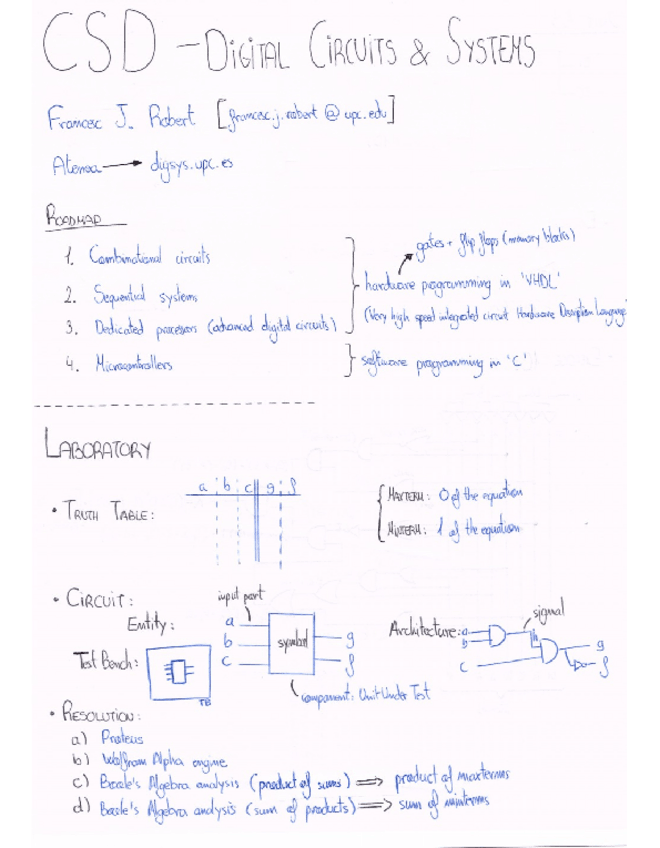 CSD - DIGITAL CIRCUITS & SYSTEMS
Francesc J. Robert [francesc.j.robert @ upc.edu]
Atenea → digsys.upc.es
ROADMAP
1. Combinational circuits
2. Sequential systems
3. Dedicated processors (advanced digital circuits)
4. Microcontrollers
gates + flip flops (memory blocks)
hardware programming in 'VHDL'
(Very high speed integrated circuit Hardware Description Language
software programming in 'C'
LABORATORY
• TRUTH TABLE:
a b c g f
MAXTERM: 0 of the equation
MINTERM: 1 of the equation
• CIRCUIT:
Entity:
input port
a
b
c
symbol
g
f
Component: Unit Under Test
Test Bench:
TB
Architecture:
a
b
c
signal
h
g
f
• RESOLUTION:
a) Proteus
b) Wolfram Alpha engine
c) Boole's Algebra analysis (product of sums) ⇒ product of maxterms
d) Boole's Algebra analysis (sum of products) ⇒ sum of minterms